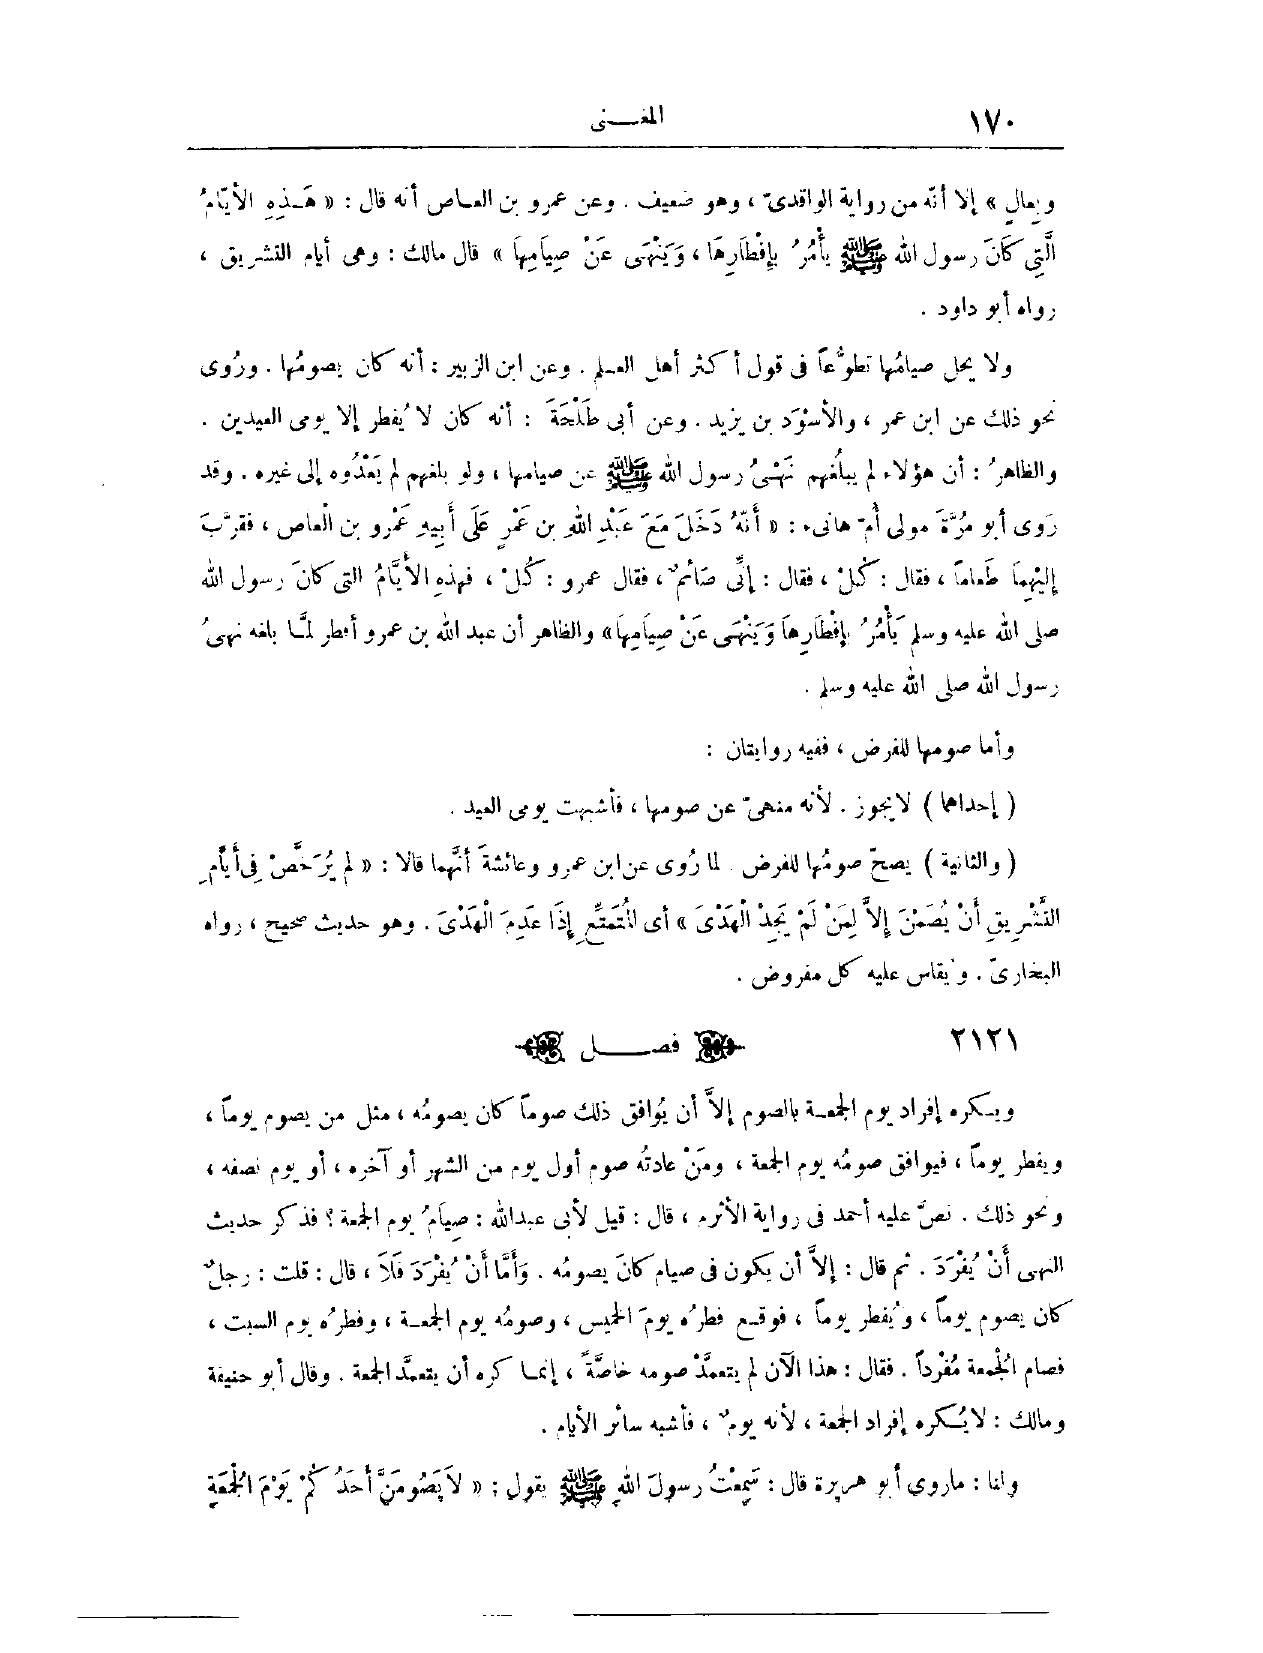 ١٧٠ المغـــنى
وبِعالٍ » إلا أنّه من رواية الواقدىّ ، وهو ضعيف . وعن عمرو بن العـاص أنه قال : « هَـذِهِ الأيّامُ
الَّتِى كَانَ رسول الله ﷺ يأْمُرُ بِإِفْطَارِهَا ، وَيَنْهَى عَنْ صِيَامِهَا » قال مالك : وهى أيام التشريق ،
رواه أبو داود .
ولا يحل صيامُها تطوُّعاً فى قول أكثر أهل العـلم . وعن ابن الزبير : أنه كان يصومُها . ورُوى
نحو ذلك عن ابن عمر ، والأسْوَد بن يزيد . وعن أبى طَلْحَةَ : أنه كان لا يُفطر إلا يومى العيدين .
والظاهرُ : أن هؤلاء لم يبلُغهم نَهْىُ رسول الله ﷺ عن صيامها ، ولو بلغهم لم يَعْدُوه إلى غيره . وقد
رَوى أبو مُرَّةَ مولى أُمّ هانىء : « أَنّهُ دَخَلَ مَعَ عَبْدِ اللهِ بن عَمْرٍ عَلَى أَبِيهِ عَمْرو بن الْعاص ، فقرَّبَ
إلَيْهِمَا طَعاماً ، فقال : كُلْ ، فقال : إنِّى صَائمٌ ، فقال عمرو : كُلْ ، فهذهِ الأيَّامُ التى كانَ رسول الله
صلى الله عليه وسلم يَأْمُرُ بِإِفْطَارِهَا وَيَنْهَى عَنْ صِيَامِهَا» والظاهر أن عبد الله بن عمرو أفطر لمَّـا بلغه نهىُ
رسول الله صلى الله عليه وسلم .
وأما صومها للفرض ، ففيه روايتان :
( إحداها ) لايجوز . لأنه منهىّ عن صومها ، فأشبهت يومى العيد .
( والثانية ) يصحّ صومُها للفرض . لما رُوى عن ابن عمرو وعائشةَ أنَّهما قالا : « لم يُرَخَّصْ فِى أَيَّامِ
التَّشْرِيقِ أَنْ يُصَمْنَ إلاَّ لِمَنْ لَمْ يَجِدْ الْهَدْىَ » أى الْمُتَمَتِّعِ إِذَا عَدِمَ الْهَدْىَ . وهو حديث صحيح ، رواه
البخارىّ . ويُقاس عليه كل مفروض .
٢١٢١ فصـــل
ويـكره إفراد يوم الجمعـة بالصوم إلاَّ أن يُوافق ذلك صوماً كان يصومُه ، مثل من يصوم يوماً ،
ويفطر يوماً ، فيوافق صومُه يوم الجمعة ، ومَنْ عادتُه صوم أول يوم من الشهر أو آخره ، أو يوم نصفه ،
ونحو ذلك . نصَّ عليه أحمد فى رواية الأثرم ، قال : قيل لأبى عبدالله : صِيَامُ يوم الجمعة ؟ فذكر حديث
النهى أَنْ يُفْرَدَ . ثم قال : إلاَّ أن يكون فى صيام كانَ يصومُه . وَأَمَّا أَنْ يُفْرَدَ فَلَا ، قال : قلت : رجلٌ
كان يصوم يوماً ، ويُفطر يوماً ، فوقـع فطرُه يومَ الخميس ، وصومُه يوم الجمعـة ، وفطرُه يوم السبت ،
فصام الْجُمعة مُفْرداً . فقال : هذا الآن لم يتعمدْ صومه خاصَّةً ، إنمـا كره أن يتعمَّد الجمعة . وقال أبو حنيفة
ومالك : لايُـكره إفراد الجمعة ، لأنه يومٌ ، فأشبه سائر الأيام .
ولنا : ماروى أبو هريرة قال : سَمِعْتُ رسولَ اللهِ ﷺ يقول : « لاَيَصُومَنَّ أَحَدُكُمْ يَوْمَ الْجُمَعَةِ